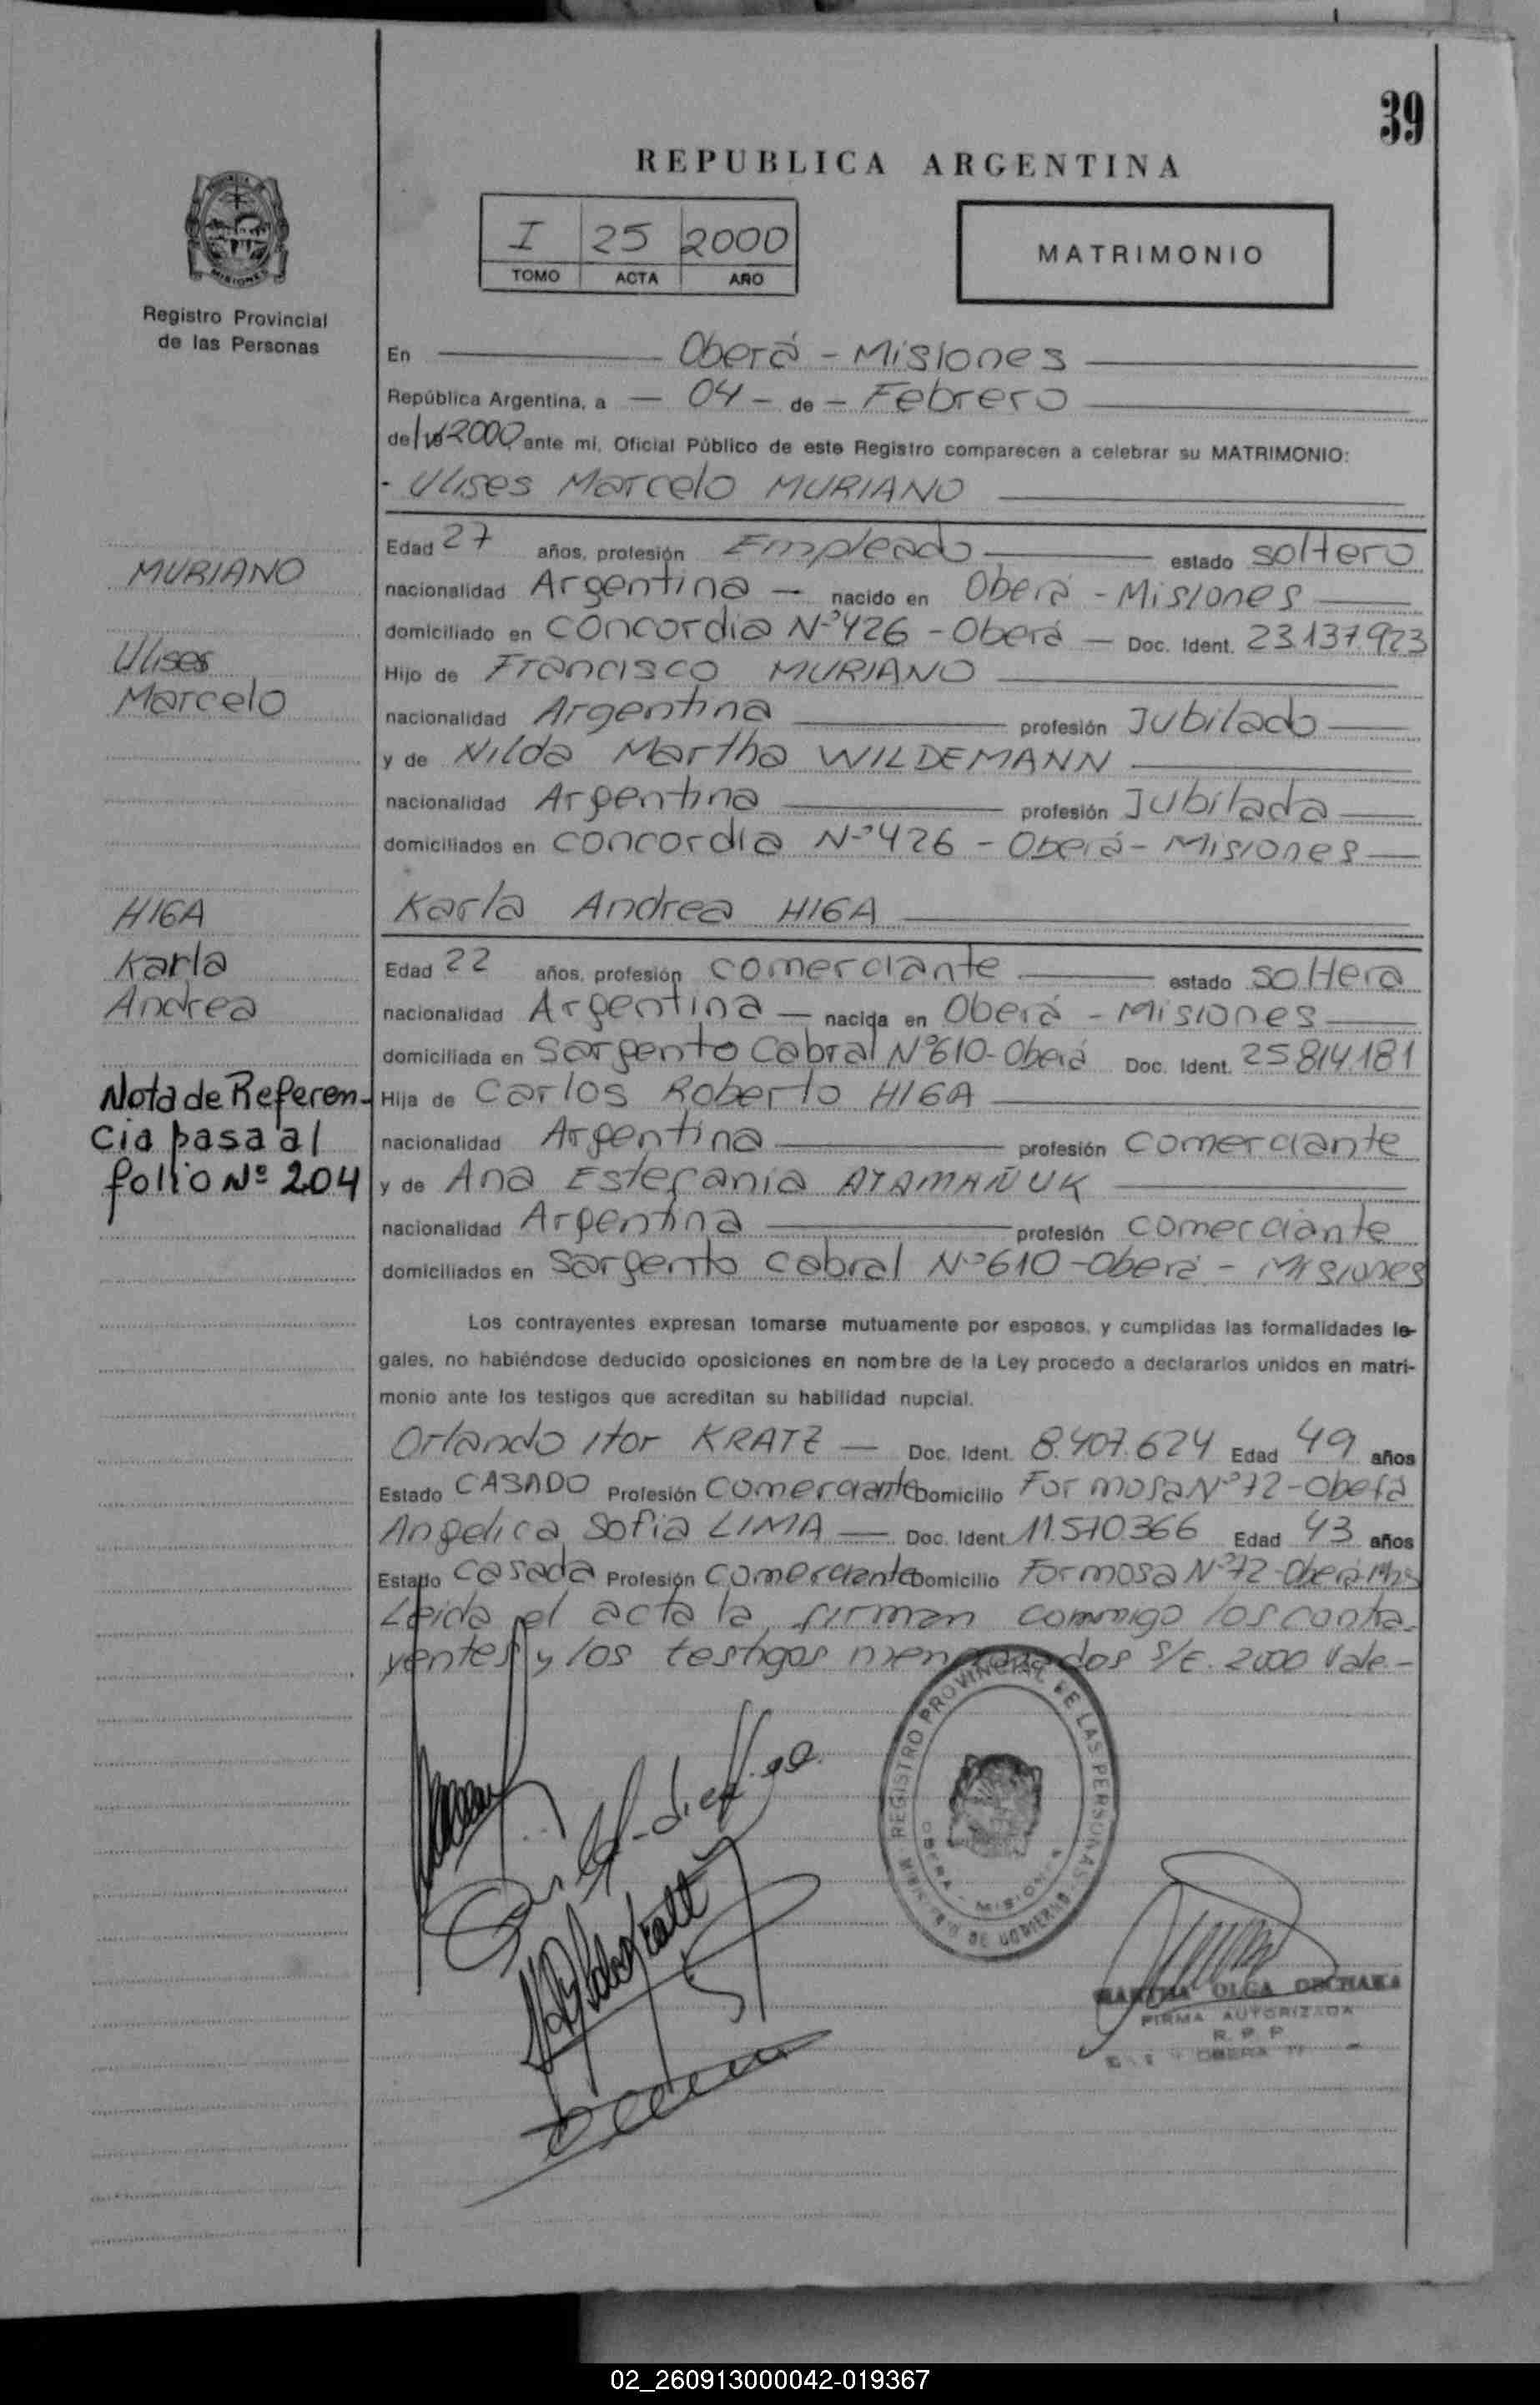 39
REPUBLICA ARGENTINA
I 25 2000
TOMO ACTA AÑO
MATRIMONIO
Registro Provincial
de las Personas
En Oberá - Misiones
República Argentina, a - 04 - de - Febrero
de 2000 ante mí, Oficial Público de este Registro comparecen a celebrar su MATRIMONIO:
- Ulises Marcelo MURIANO
Edad 27 años, profesión Empleado estado soltero
MURIANO
nacionalidad Argentina - nacido en Oberá - Misiones
domiciliado en Concordia Nº 426 - Oberá - Doc. Ident. 23.137.923
Ulises
Hijo de Francisco MURIANO
Marcelo
nacionalidad Argentina profesión Jubilado
y de Nilda Martha WILDEMANN
nacionalidad Argentina profesión Jubilada
domiciliados en Concordia Nº 426 - Oberá - Misiones
HIGA
Karla Andrea HIGA
Karla
Edad 22 años, profesión comerciante estado soltera
Andrea
nacionalidad Argentina - nacida en Oberá - Misiones
domiciliada en Sargento Cabral Nº 610 - Oberá Doc. Ident. 25.814.181
Nota de Referen-
Hija de Carlos Roberto HIGA
cia pasa al
nacionalidad Argentina profesión comerciante
folio Nº 204
y de Ana Estefania ATAMAÑUK
nacionalidad Argentina profesión comerciante
domiciliados en Sargento Cabral Nº 610 - Oberá - Misiones
Los contrayentes expresan tomarse mutuamente por esposos, y cumplidas las formalidades le-
gales, no habiéndose deducido oposiciones en nombre de la Ley procedo a declararlos unidos en matri-
monio ante los testigos que acreditan su habilidad nupcial.
Orlando Itor KRATZ - Doc. Ident. 8.407.624 Edad 49 años
Estado CASADO Profesión comerciante Domicilio Formosa Nº 72 - Oberá
Angelica Sofia LIMA - Doc. Ident. 11.570.366 Edad 43 años
Estado casada Profesión comerciante Domicilio Formosa Nº 72 - Oberá Mns
Leida el acta la firman conmigo los contra-
yentes y los testigos mencionados S/E. 2000 Vale -
REGISTRO PROVINCIAL DE LAS PERSONAS
MINISTERIO DE GOBIERNO
OBERA - MISIONES
MARTHA OLGA
FIRMA AUTORIZADA
R. P. P.
OBERA
02_260913000042-019367